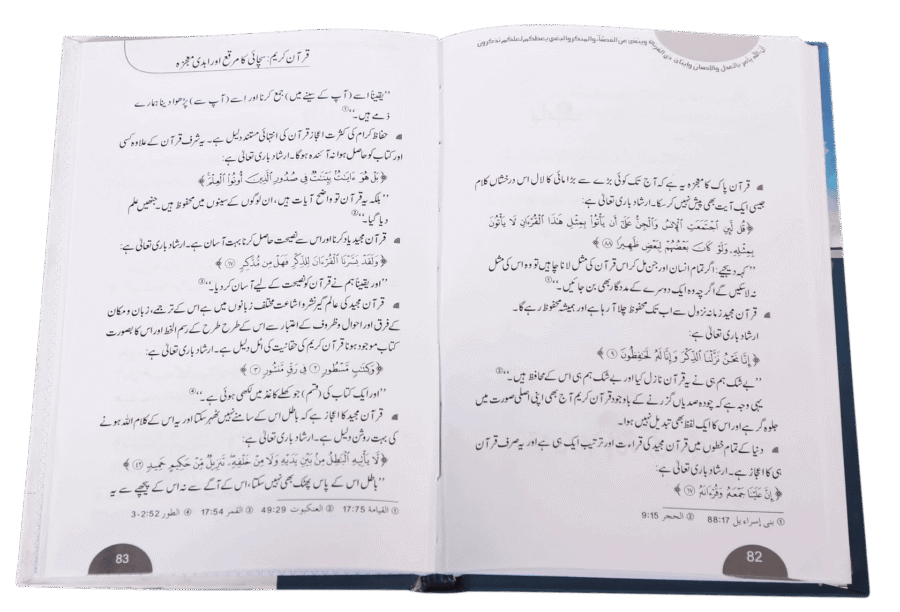 ان الله يامر بالعدل والاحسان وايتاى ذى القربى وينهى عن الفحشآء والمنكر والبغى يعظكم لعلكم تذكرون
◄ قرآن پاک کا معجزہ یہ ہے کہ آج تک کوئی بڑے سے بڑا مائی کا لال اس درخشاں کلام
جیسی ایک آیت بھی پیش نہیں کر سکا۔ ارشاد باری تعالیٰ ہے:
﴿قُل لَّئِنِ ٱجْتَمَعَتِ ٱلْإِنسُ وَٱلْجِنُّ عَلَىٰٓ أَن يَأْتُوا۟ بِمِثْلِ هَٰذَا ٱلْقُرْءَانِ لَا يَأْتُونَ
بِمِثْلِهِۦ وَلَوْ كَانَ بَعْضُهُمْ لِبَعْضٍ ظَهِيرًا ۝٨٨﴾
’’کہہ دیجیے: اگر تمام انسان اور جن مل کر اس قرآن کی مثل لانا چاہیں تو وہ اس کی مثل
نہ لا سکیں گے اگرچہ وہ ایک دوسرے کے مددگار بھی بن جائیں۔‘‘①
◄ قرآن مجید زمانہ نزول سے اب تک محفوظ چلا آ رہا ہے اور ہمیشہ محفوظ رہے گا۔
ارشاد باری تعالیٰ ہے:
﴿إِنَّا نَحْنُ نَزَّلْنَا ٱلذِّكْرَ وَإِنَّا لَهُۥ لَحَٰفِظُونَ ۝٩﴾
’’بے شک ہم ہی نے یہ قرآن نازل کیا اور بے شک ہم ہی اس کے محافظ ہیں۔‘‘②
یہی وجہ ہے کہ چودہ صدیاں گزرنے کے باوجود قرآن کریم آج بھی اپنی اصلی صورت میں
جلوہ گر ہے اور اس کا ایک لفظ بھی تبدیل نہیں ہوا۔
◄ دنیا کے تمام خطوں میں قرآن مجید کی قراءت اور ترتیب ایک ہی ہے اور یہ صرف قرآن
ہی کا اعجاز ہے۔ ارشاد باری تعالیٰ ہے:
﴿إِنَّ عَلَيْنَا جَمْعَهُۥ وَقُرْءَانَهُۥ ۝١٧﴾
① بنی إسراءیل 88:17 ② الحجر 9:15
82
قرآن کریم: سچائی کا مرقع اور ابدی معجزہ
’’یقیناً اسے (آپ کے سینے میں) جمع کرنا اور اسے (آپ سے) پڑھوا دینا ہمارے
ذمے ہیں۔‘‘①
◄ حفاظ کرام کی کثرت اعجاز قرآن کی انتہائی مستند دلیل ہے۔ یہ شرف قرآن کے علاوہ کسی
اور کتاب کو حاصل ہوا نہ آئندہ ہوگا۔ ارشاد باری تعالیٰ ہے:
﴿بَلْ هُوَ ءَايَٰتٌۢ بَيِّنَٰتٌ فِى صُدُورِ ٱلَّذِينَ أُوتُوا۟ ٱلْعِلْمَ﴾
’’بلکہ یہ قرآن تو واضح آیات ہیں، ان لوگوں کے سینوں میں محفوظ ہیں۔ جنھیں علم
دیا گیا۔‘‘②
◄ قرآن مجید یاد کرنا اور اس سے نصیحت حاصل کرنا بہت آسان ہے۔ ارشاد باری تعالیٰ ہے:
﴿وَلَقَدْ يَسَّرْنَا ٱلْقُرْءَانَ لِلذِّكْرِ فَهَلْ مِن مُّدَّكِرٍ ۝١٧﴾
’’اور یقیناً ہم نے قرآن کو نصیحت کے لیے آسان کر دیا۔‘‘③
◄ قرآن مجید کی عالم گیر نشر و اشاعت مختلف زبانوں میں ہے اس کے ترجمے، زبان و مکان
کے فرق اور احوال و ظروف کے اعتبار سے اس کے طرح طرح کے رسم الخط اور اس کا بصورت
کتاب موجود ہونا قرآن کریم کی حقانیت کی اٹل دلیل ہے۔ ارشاد باری تعالیٰ ہے:
﴿وَكِتَٰبٍ مَّسْطُورٍ ۝٢ فِى رَقٍّ مَّنشُورٍ ۝٣﴾
’’اور ایک کتاب کی (قسم) جو کھلے کاغذ میں لکھی ہوئی ہے۔‘‘④
◄ قرآن مجید کا اعجاز ہے کہ باطل اس کے سامنے نہیں ٹھہر سکتا اور یہ اس کے کلام اللہ ہونے
کی بہت روشن دلیل ہے۔ ارشاد باری تعالیٰ ہے:
﴿لَّا يَأْتِيهِ ٱلْبَٰطِلُ مِنۢ بَيْنِ يَدَيْهِ وَلَا مِنْ خَلْفِهِۦ تَنزِيلٌ مِّنْ حَكِيمٍ حَمِيدٍ ۝٤٢﴾
’’باطل اس کے پاس پھٹک بھی نہیں سکتا، اس کے آگے سے نہ اس کے پیچھے سے یہ
① القيامة 17:75 ② العنكبوت 49:29 ③ القمر 17:54 ④ الطور 3-2:52
83